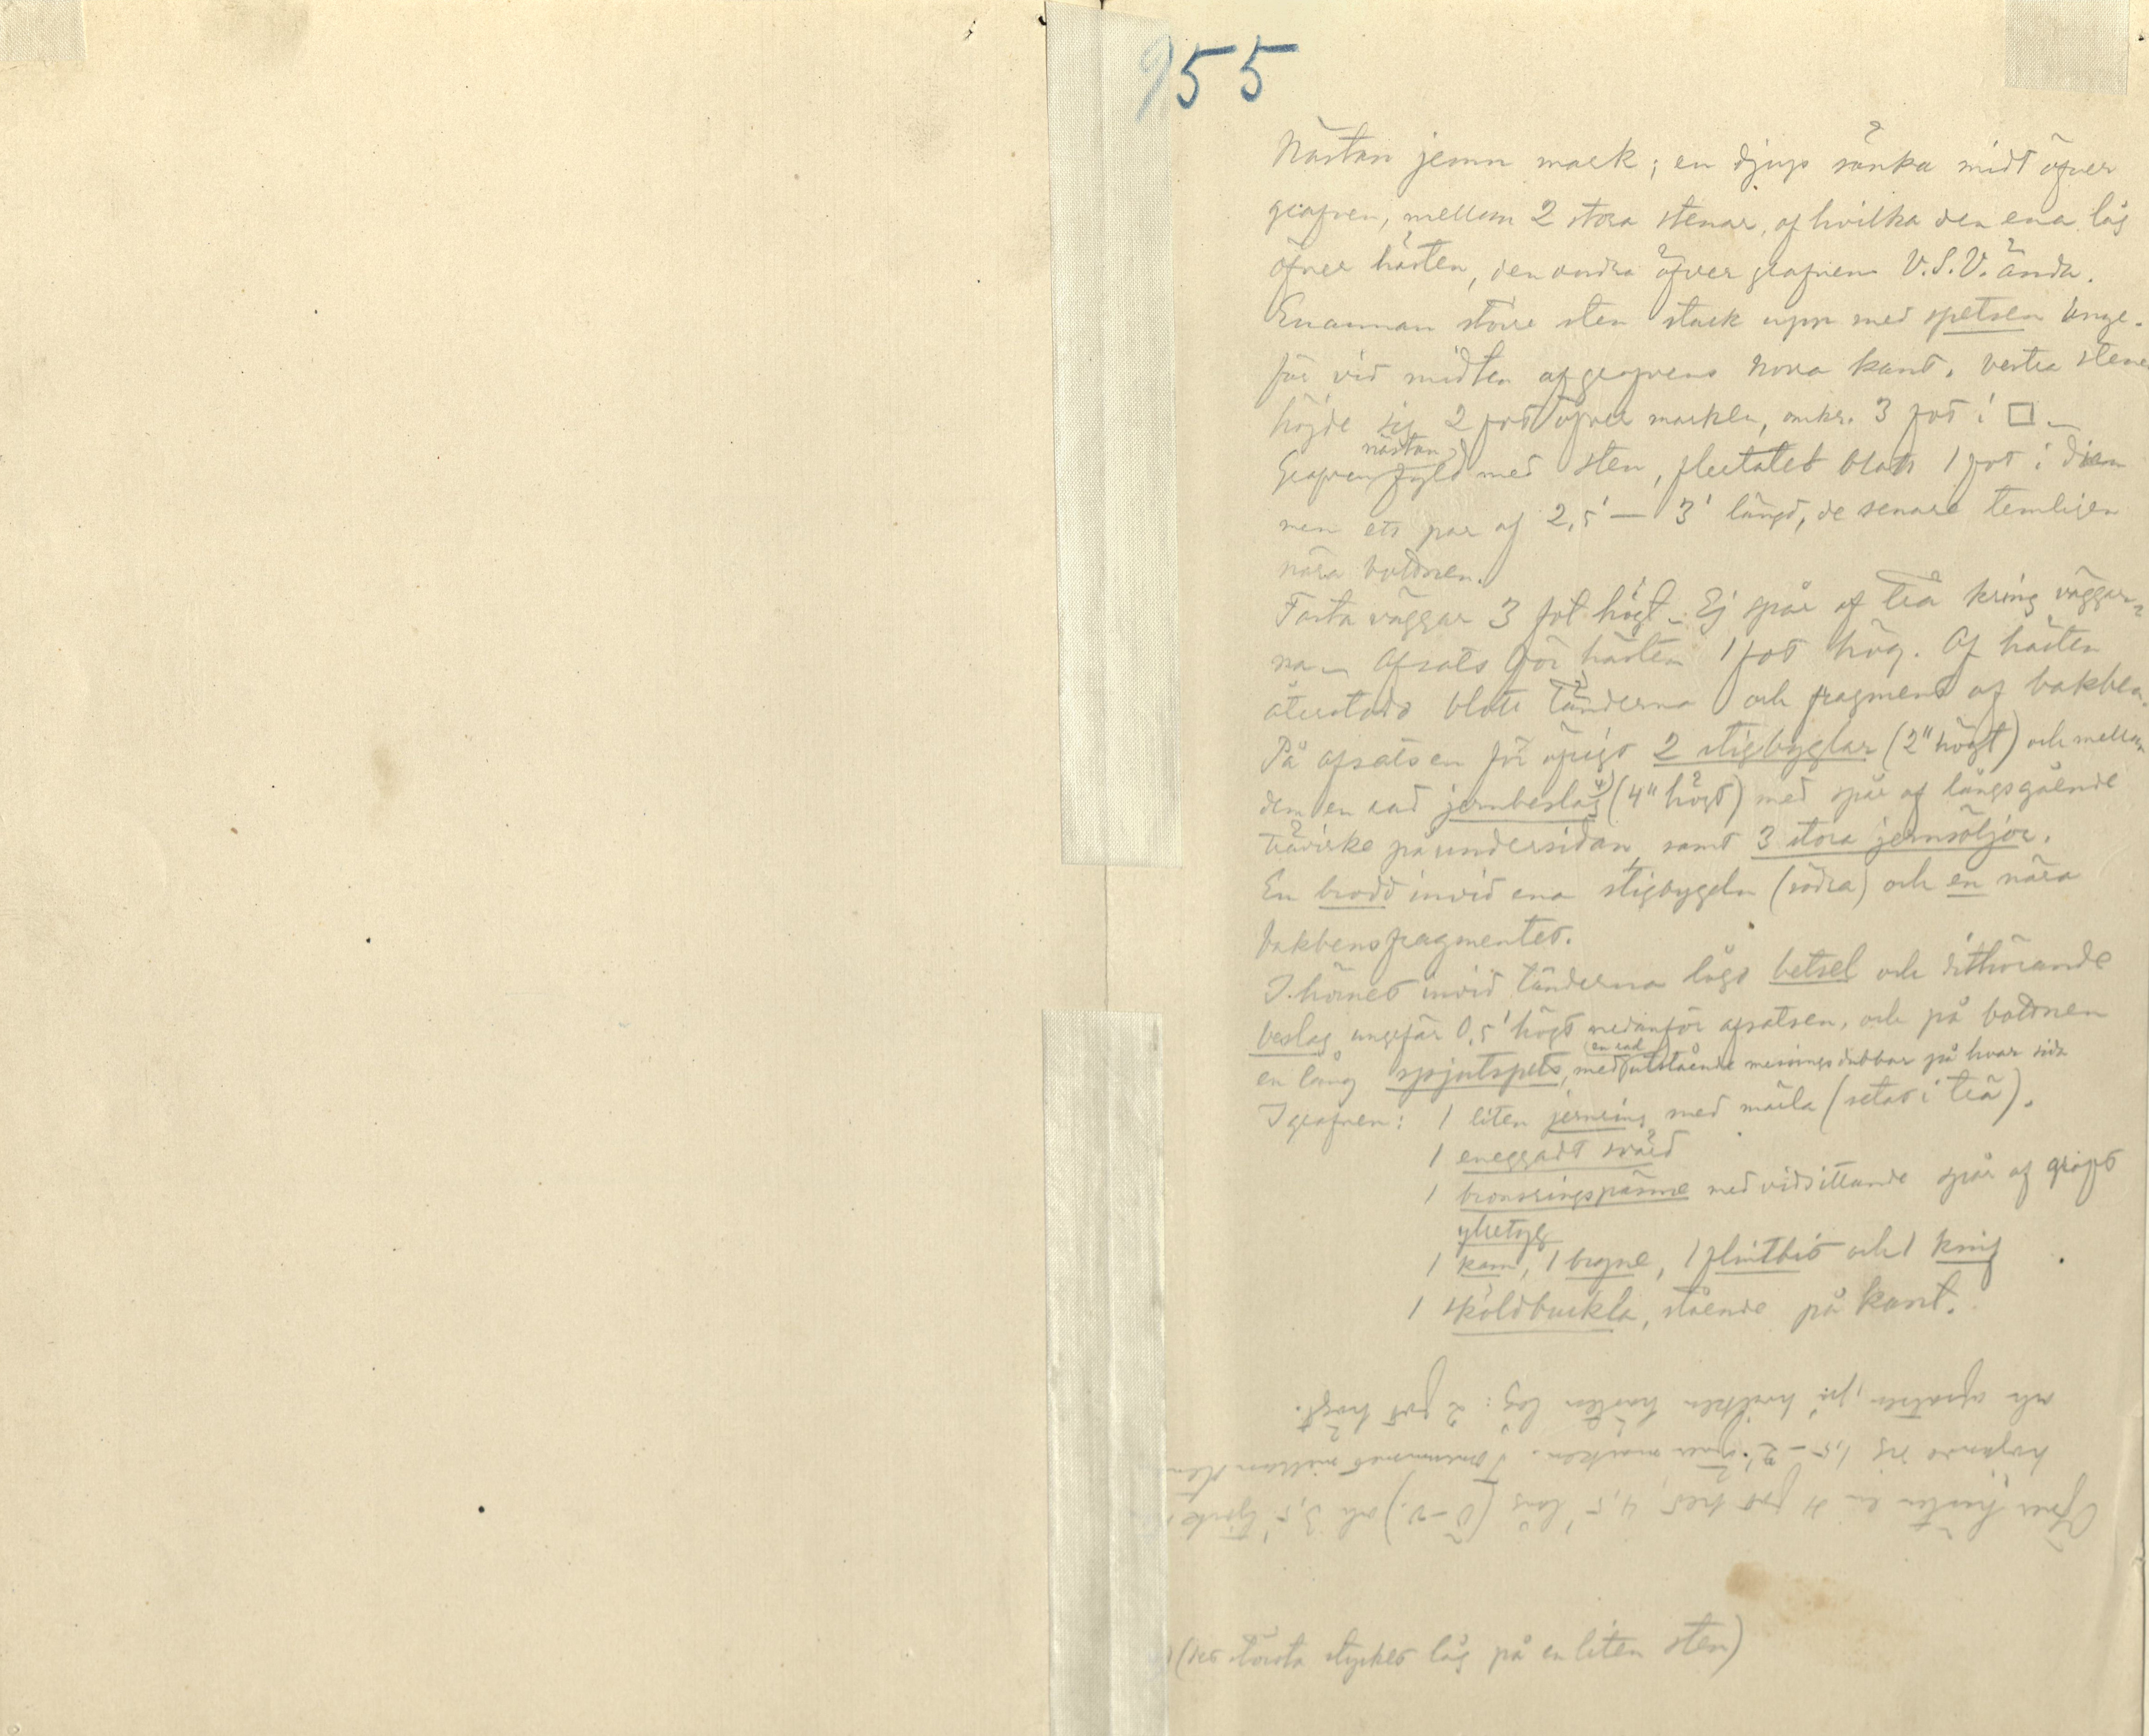 955
Nästan jemn mark; en djup sänka midt öfver
grafven, mellan 2 stora stenar, af hvilka den ena låg
öfver hästen, den andra öfver grafvens V.S.V. ända.
En annan större sten stack upp med spetsen unge-
fär vid midten af grafvens norra kant. Vestra stenen
höjde sig 2 fot öfver marken, omkr. 3 fot i □ –
Grafven nästan fyld med sten, flertalet blott 1 fot i diam
men ett par af 2,5' — 3' längd, de senare temligen
nära bottnen.
Fasta väggar 3 fot högt – Ej spår af trä kring väggar-
na – Afsats för hästen 1 fot hög. Af hästen
återstodo blott tänderna och fragment af bakben.
På afsatsen för öfrigt 2 stigbyglar (2" högt) och mellan
dem en rad jernbeslag 4) (4" högt) med spår af långsgående
trävirke på undersidan, samt 3 stora jernsöljor.
En brodd invid ena stigbygeln (södra) och en nära
bakbensfragmentet.
I hörnet invid tänderna lågo betsel och dithörande
beslag ungefär 0,5' högt nedanför afsatsen, och på bottnen
en lång spjutspets, med en rad utstående messingsdubbar på hvar sida
I grafven: 1 liten jernring med märla (setat i trä).
1 eneggadt svärd
1 bronsringspänne med vidsittande spår af gröfre
ylletyg
1 kam, 1 bryne, 1 flintbit och 1 knif
1 sköldbuckla, stående på kant.
Öfver hästen en 4 fot bred, 4,5' lång (Ö–V.) och 3,5' tjock,
höjande sig 1,5 – 2' öfver marken. Tomrummet mellan sten
och afsatsen, på hvilken hästen låg: 2 fot högt.
(det största stycket låg på en liten sten)